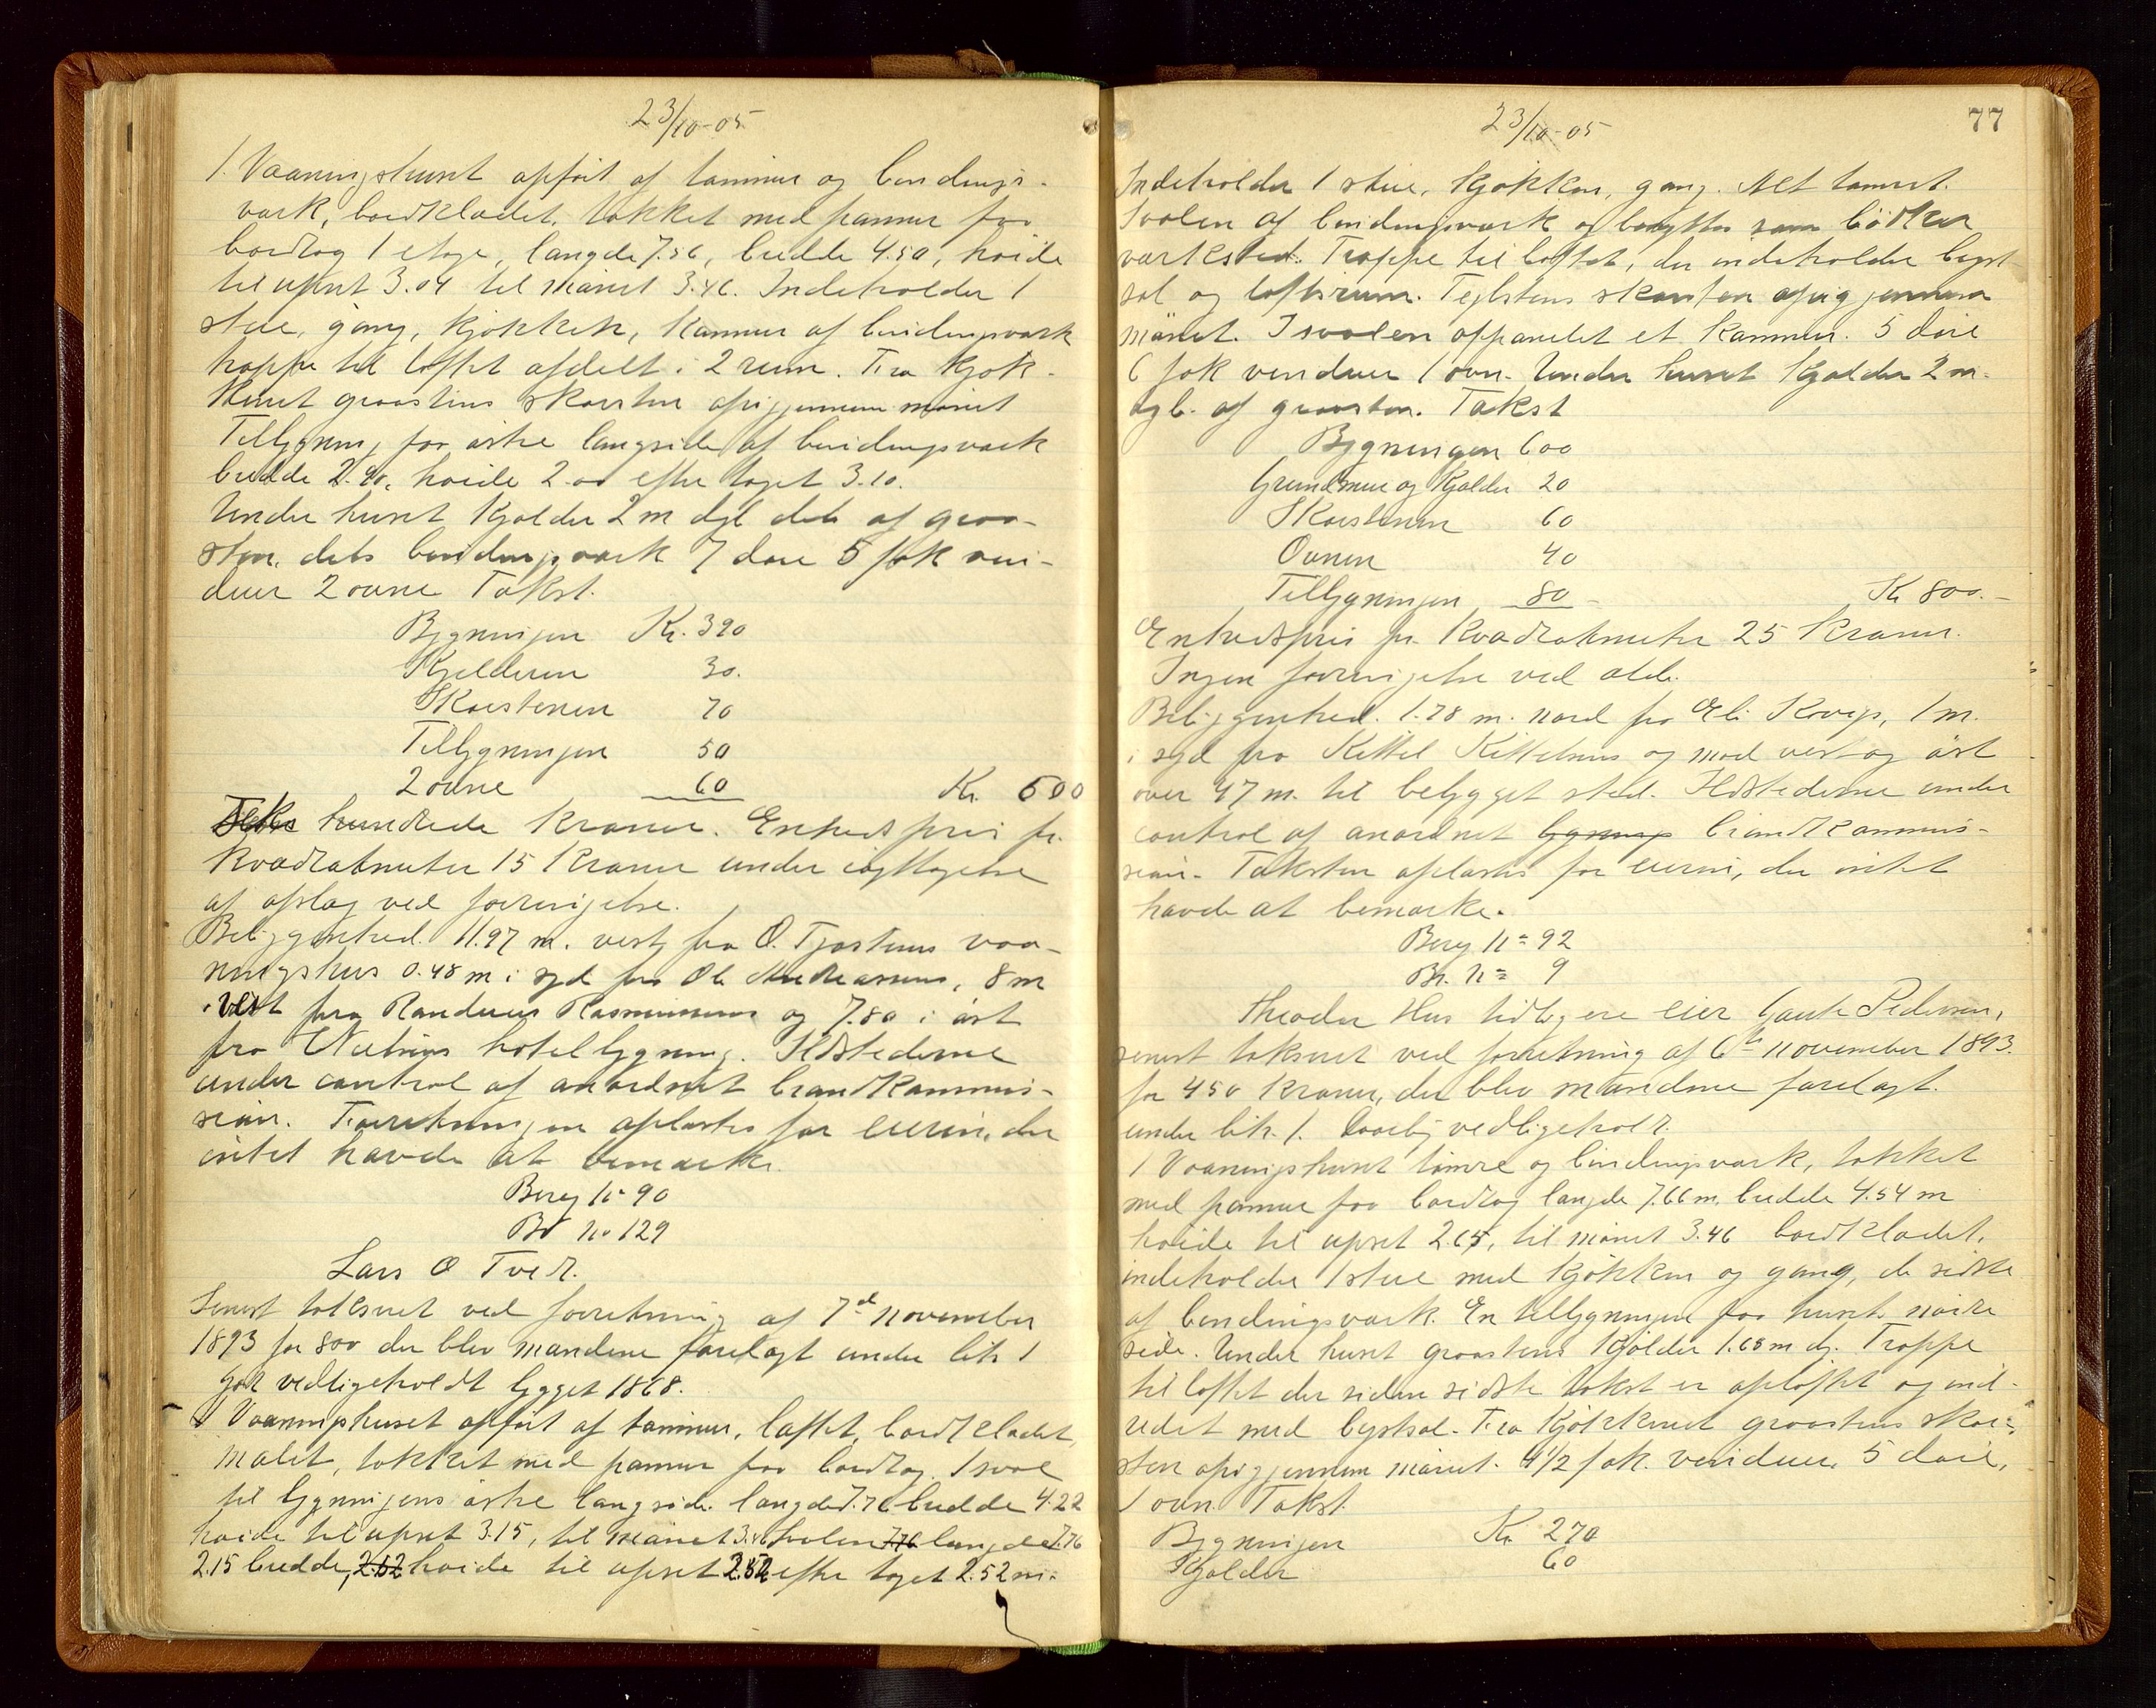 23/10-05
1. Vaaningshuset opført af tømmer og bindings-
værk, bordklædet, tækket med panner paa
bordtag 1 etage, længde 7.56, bredde 4.50, høide
til ufset 3.04 til mønet 3.46. Indeholder 1
stue, gang, kjøkken, kammer af bindingsværk
trappe til loftet afdelt i 2 rum. Fra kjøk-
kenet graastens skorsten op igjennem mønet
Tilbygning paa østre langside af bindingsværk
bredde 2.90, høide 2.00 efter taget 3.10.
Under huset kjælder 2 m dyb dels af graa-
sten, dels bindingsværk 7 døre 5 fak vin-
duer 2 ovne Takst.
Bygningen Kr. 390
Kjelderen 30.
Skorstenen 70
Tilbygningen 50
2 ovne 60 Kr. 600
Seks hundrede kroner. Enhedspris pr.
kvadratmeter 15 kroner under iagttagelse
af afslag ved forringelse.
Beliggenhed. 11.97 m. vest fra O. Tjøstems vaa-
ningshus 0.48 m i syd fra Ole Andreasens, 8 m
i vest fra Randver Rasmussens og 7.80 i øst
fra Nielsens hotelbygning. Ildstederne
under control af anordnet brandkommis-
sion. Forretningen oplæstes for eieren, der
intet havde at bemærke.
Berg no 90
Br no 129
Lars O Tved.
Senest taksert ved forretning af 7d november
1893 for 800 der blev mændene forelagt under lit. 1
godt vedligeholdt bygget 1868.
1 Vaaningshuset opført af tømmer, loftet, bordklædet,
malet, tækket med panner paa bordtag. 1 sval
til bygningens østre langside længde 7.76 bredde 4.22
høide til ufset 3.15, til mønet 3.46 svalen 7.76 længde 7.76
2.15 bredde, 2.62 høide til ufset 2.52 efter taget 2.52 m.
77
23/10-05
Indeholder 1 stue, kjøkken, gang. Alt tømret.
Svalen af bindingsværk og benyttes som bødker
værksted. Trappe til loftet, der indeholder byst
sal og loftsrum. Teglstens skorsten op igjennem
mønet. I svalen oppanelet et kammer. 5 døre
6 fak vinduer 1 ovn. Under huset kjælder 2 m.
dyb. af graasten. Takst
Bygningen 600
Grundmur og kjælder 20
Skorstenen 60
Ovnen 40
Tilbygningen 80 Kr 800.-
Enhedspris pr. kvadratmeter 25 kroner.
Ingen forringelse ved ælde.
Beliggenhed. 1.78 m. nord fra Eli Kovigs, 1 m.
i syd fra Kittel Kittelsens og mod vest og øst
over 47 m. til bebygget sted. Ildstederne under
control af anordnet bygning brandkommis-
sion. Taksten oplæstes for eieren, der intet
havde at bemærke.
Berg no 92
Br. no 9
Theodor Hus tidligere eier Gaute Pedersen,
senest taksert ved forretning af 6te november 1893.
for 450 kroner, der blev mændene forelagt.
under lit. 1. Daarlig vedligeholdt.
1 Vaaningshuset tømre og bindingsværk, tækket
med panner paa bordtag længde 7.66 m. bredde 4.54 m
høide til ufset 2.64, til mønet 3.46 bordklædet.
indeholder 1 stue med kjøkken og gang, de sidste
af bindingsværk. En tilbygningen paa husets nordre
side. Under huset graastens kjælder 1.68 m dy. Trappe
til loftet der siden sidste takst er opløftet og ind-
redet med bystsal. Fra kjøkkenet graastens skor-
sten op igjennem mønet. 4 1/2 fak. vinduer. 5 døre,
1 ovn. Takst
Bygningen Kr. 270
Kjælder 60